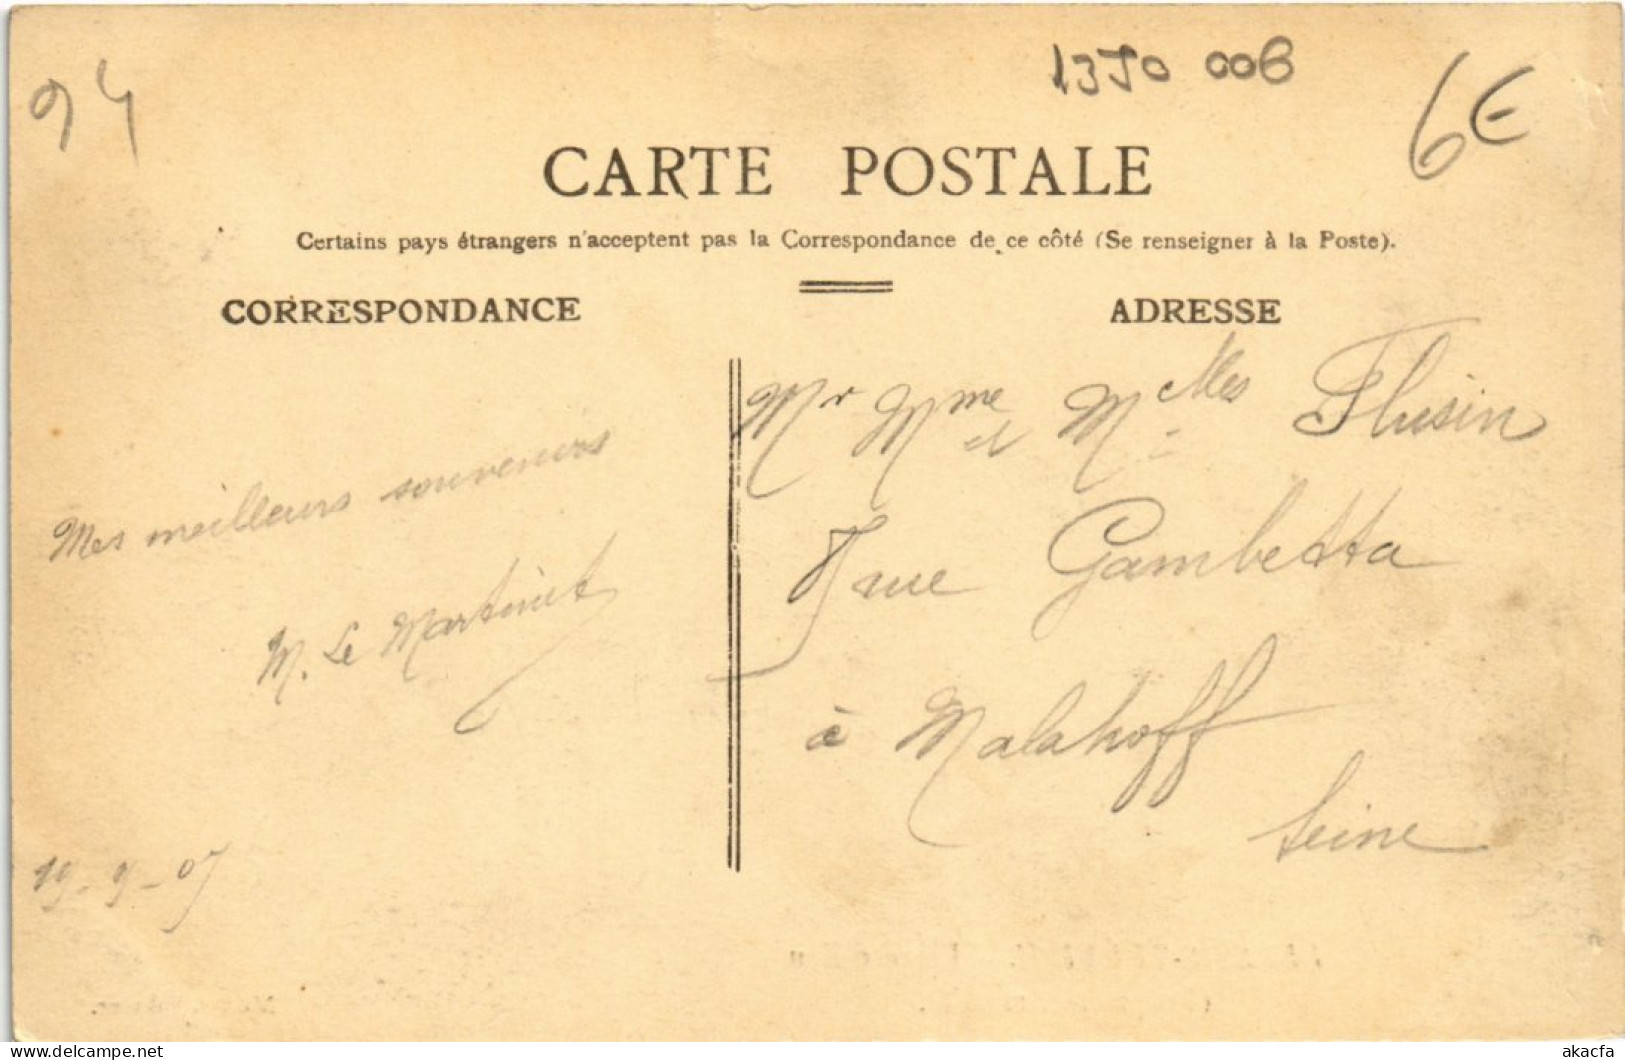 94
1350 006
6€
CARTE POSTALE
Certains pays étrangers n'acceptent pas la Correspondance de ce côté (Se renseigner à la Poste).
CORRESPONDANCE
ADRESSE
Mr Mme et Mlles Flusin
7 rue Gambetta
à Malakoff
Seine
Mes meilleurs souvenirs
M. Le Martinet
19-9-07
akacfa